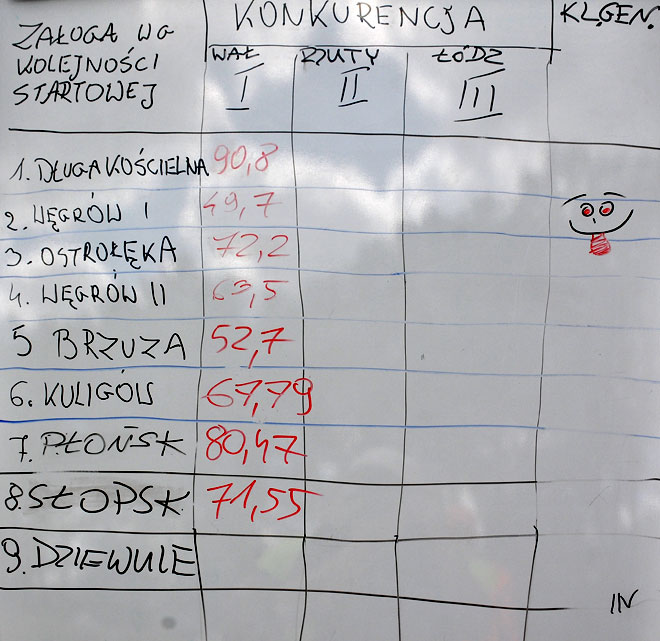 ZAŁOGA WG
KOLEJNOŚCI
STARTOWEJ
KONKURENCJA
KL.GEN.
WAŁ RZUTY ŁÓDZ
I II III
1. DŁUGA KOŚCIELNA 90,8
2. WĘGRÓW I 49,7
3. OSTROŁĘKA 72,2
4. WĘGRÓW II 63,5
5 BRZUZA 52,7
6. KULIGÓW 67,79
7. PŁOŃSK 80,47
8. SŁOPSK 71,55
9. DZIEWULE
IN